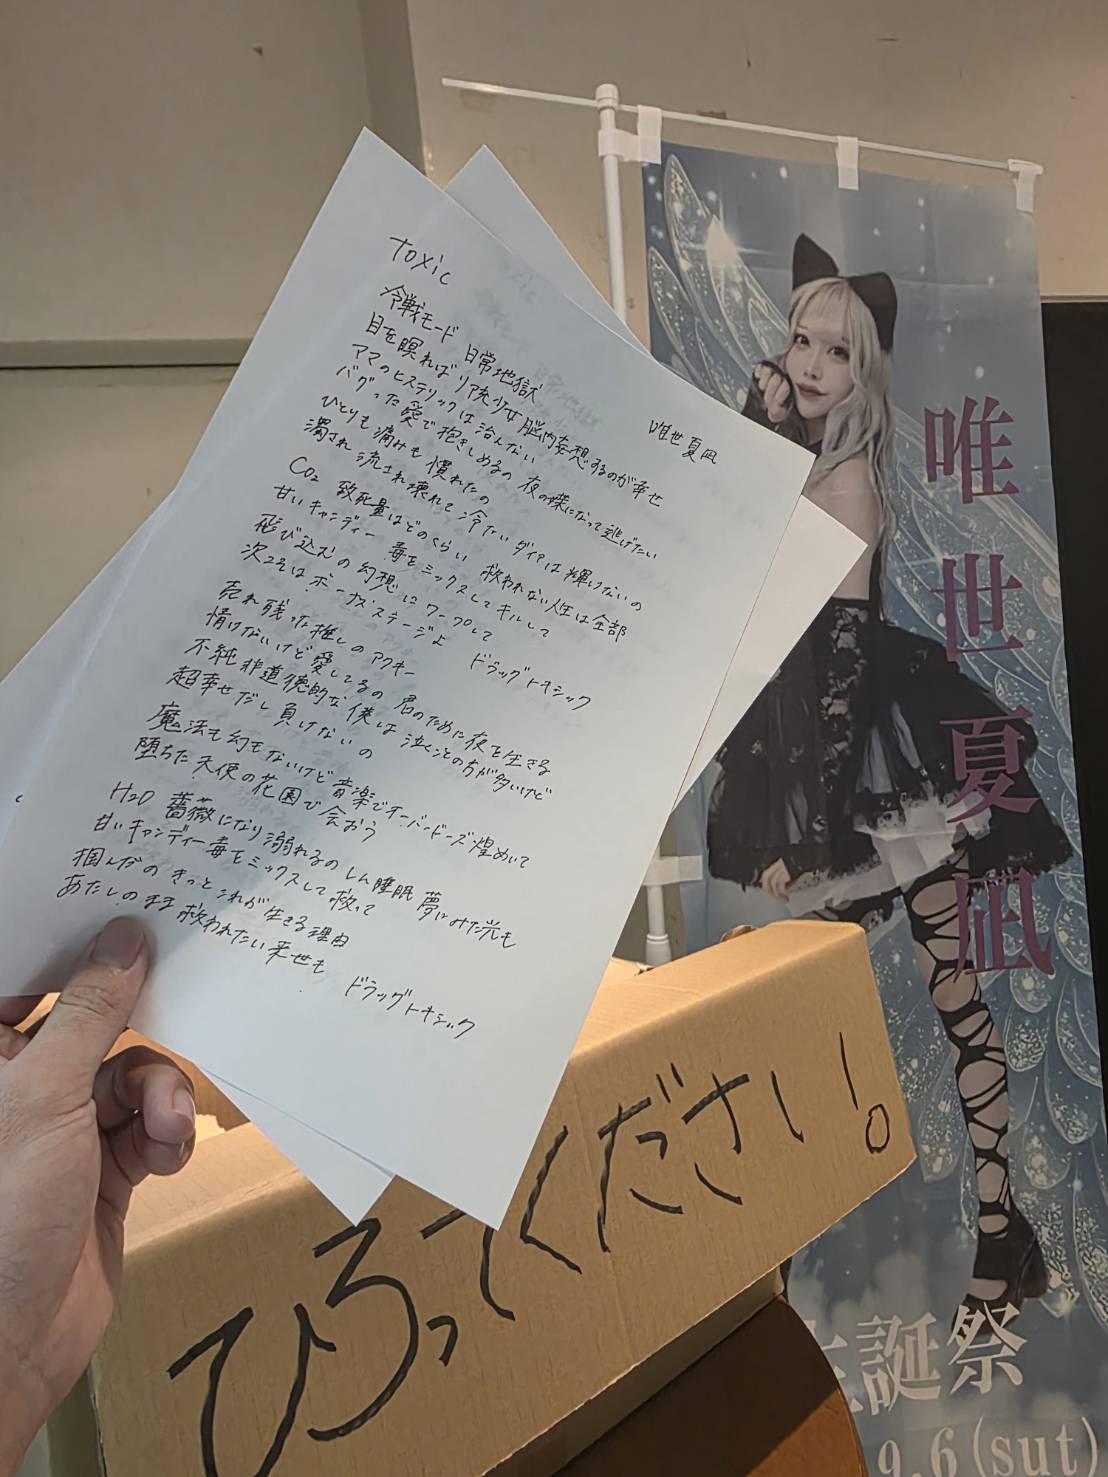 toxic
唯世夏凪
冷戦モード 日常地獄
目を瞑ればリ銃少女脳内妄想するのが幸せ
ママのヒステリックは治んない 夜の蝶になって逃げたい
バグった愛で抱きしめるの
ひとりも痛みも慣れたの
濁され流され壊れて冷たいダイヤは輝けないの
CO₂ 致死量はどのくらい 救われない人生は全部
甘いキャンディー毒をミックスしてキルして
飛び込むの幻想にワープして
次こそはボーナスステージよ ドラッグトキシック
売れ残った推しのアクキー
情けないけど愛してるの 君のために夜を生きる
不純非道徳的な僕は泣くことの方が多いけど
超幸せだし負けないの
魔法も幻もないけど音楽でオーバードーズ煌めいて
堕ちた天使の花園で会おう
H2O 薔薇になり溺れるの しん睡眠 夢にみた光も
甘いキャンディー毒をミックスして救って
掴んだの きっとこれが生きる理由
あたしのまま救われたい来世も ドラッグトキシック
ひろってください!
唯世夏凪
生誕祭
9.6(sut)